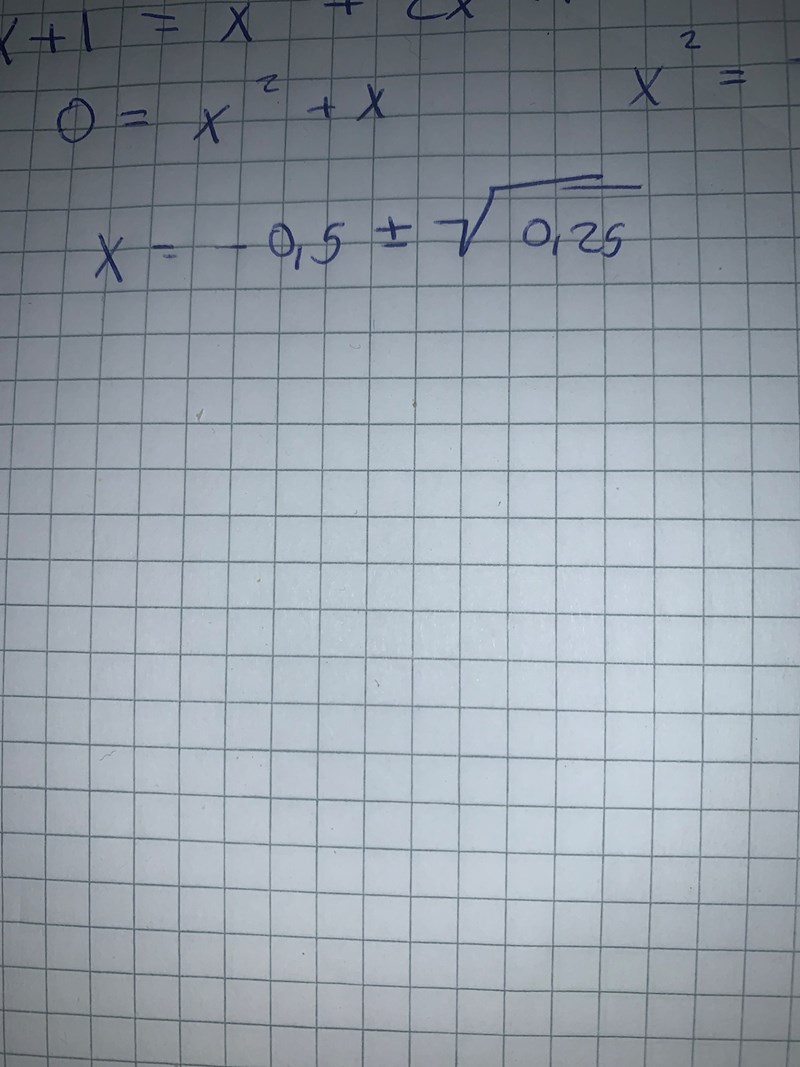 x+1 = x + 2x
0 = x² + x
x² =
x = - 0,5 ± √0,25